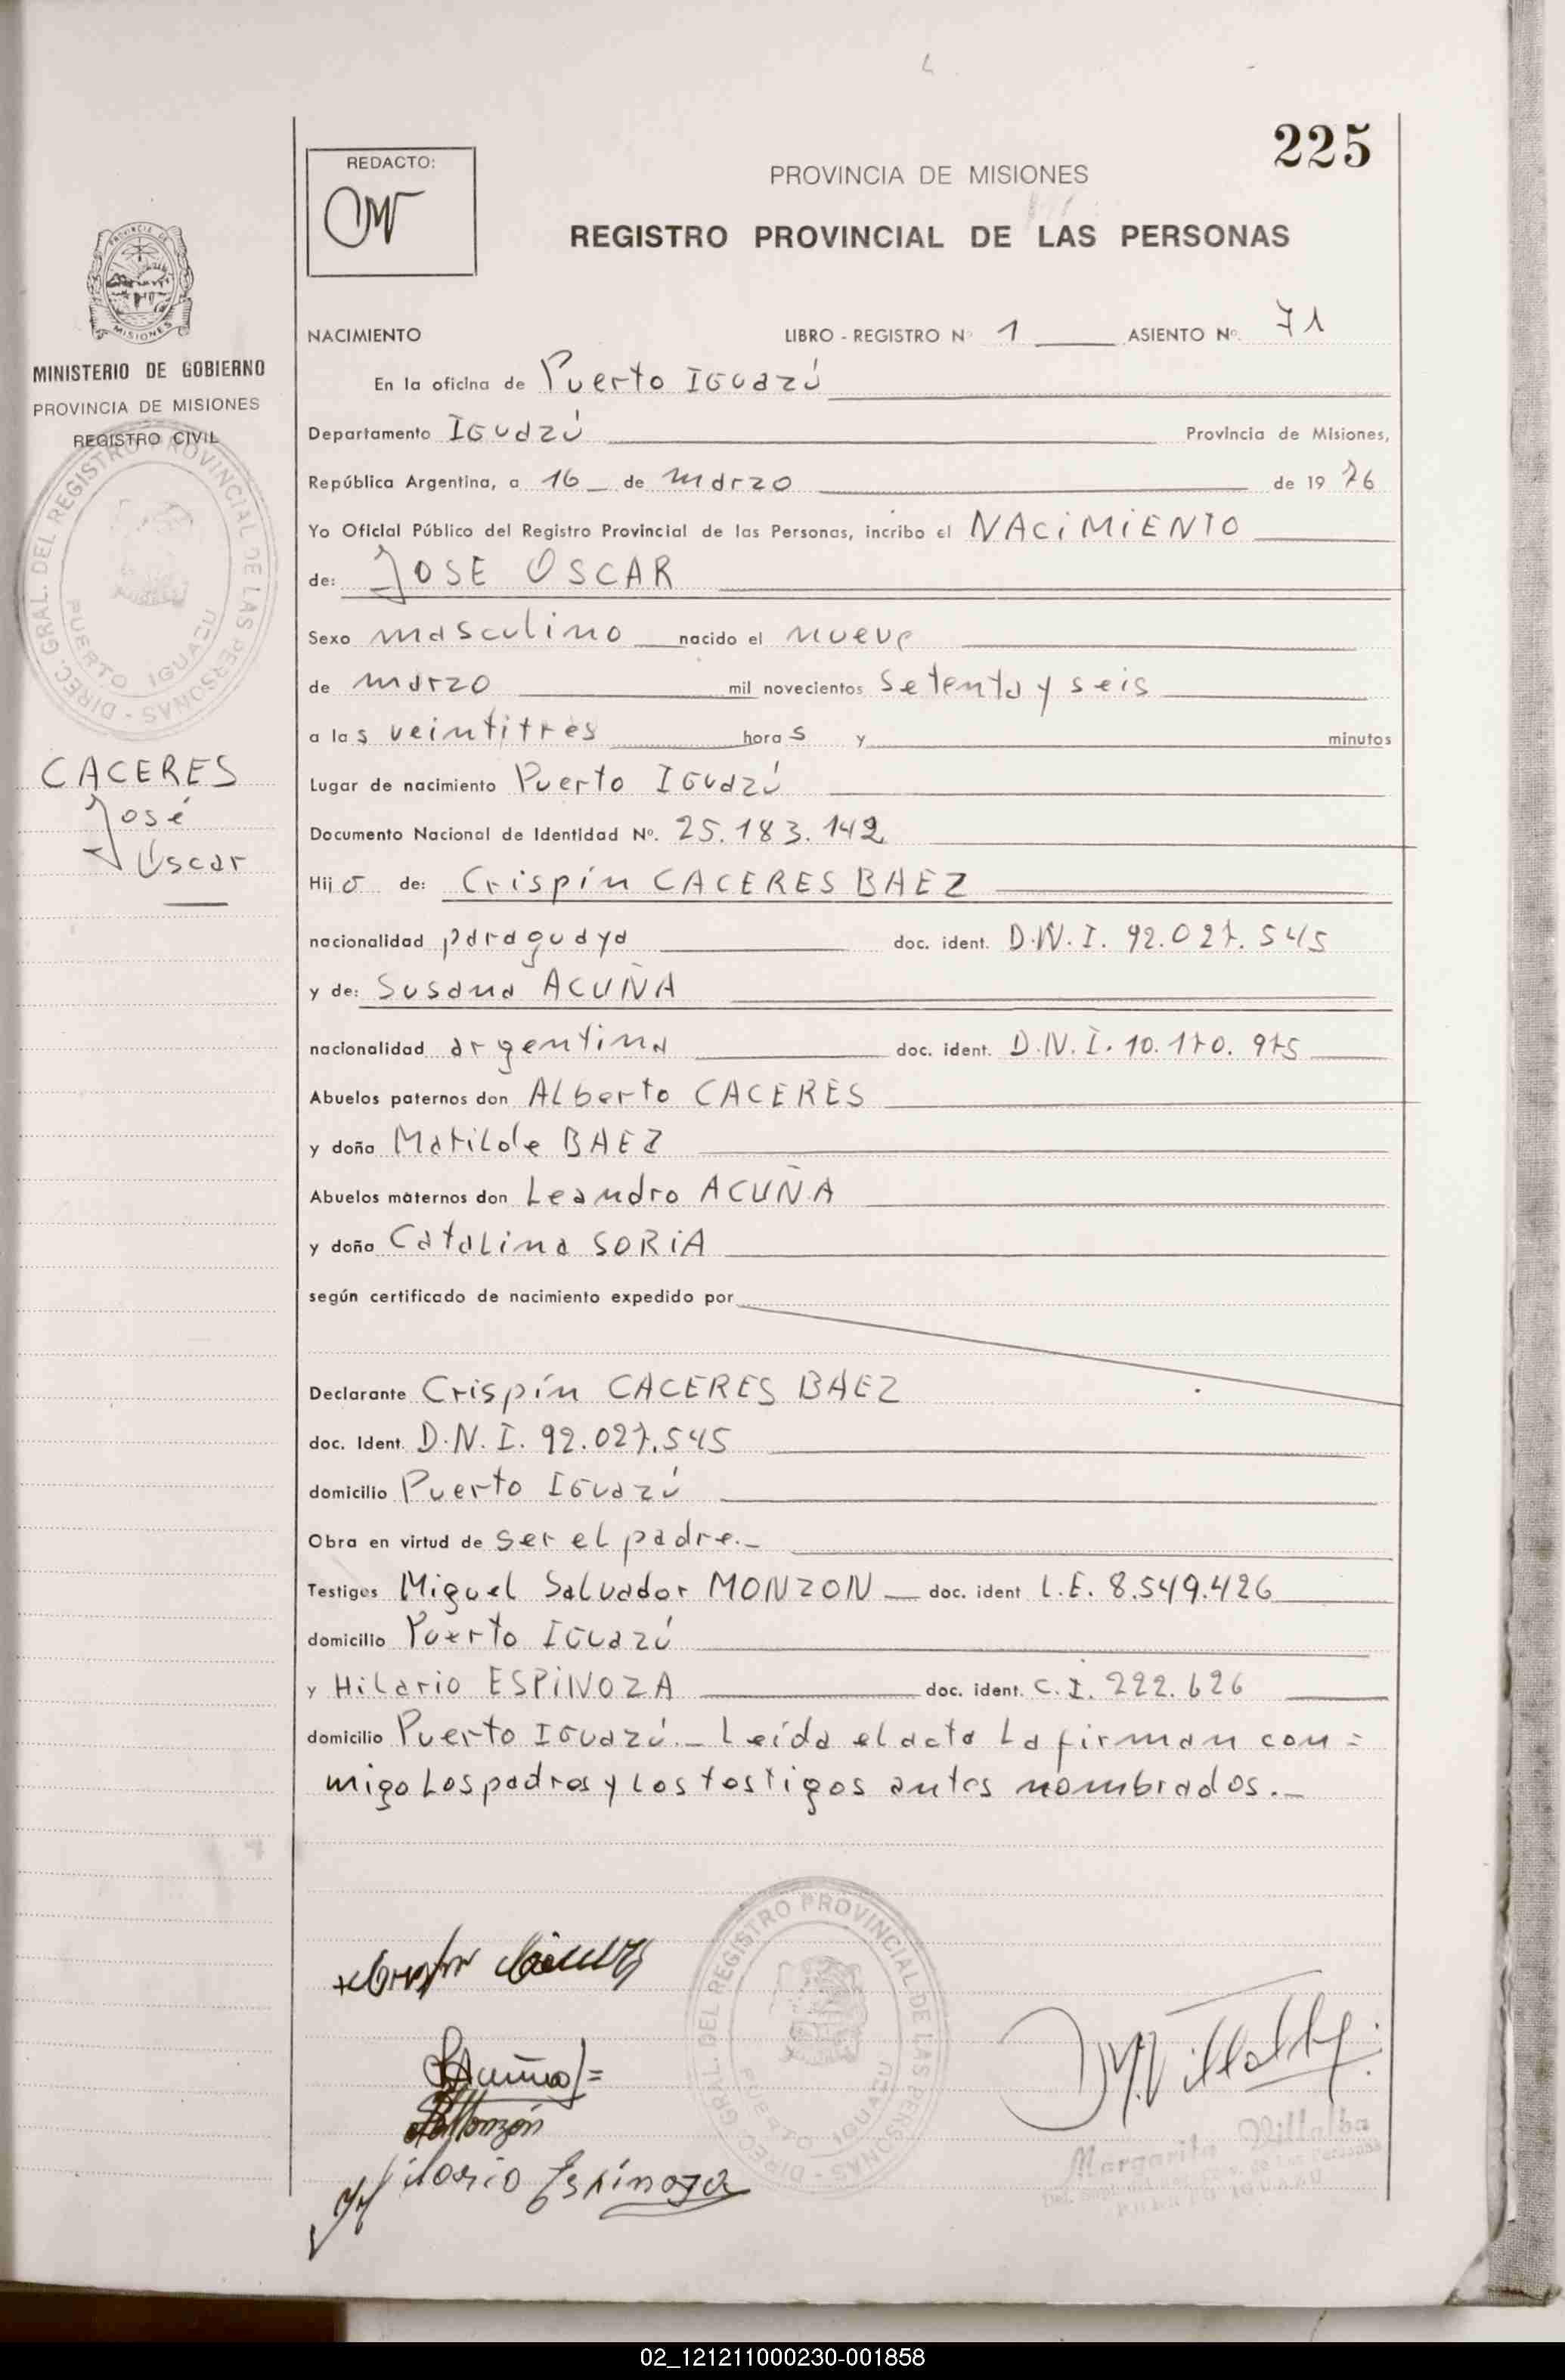 225
REDACTO:
PROVINCIA DE MISIONES
REGISTRO PROVINCIAL DE LAS PERSONAS
PROVINCIA DE
MISIONES
MINISTERIO DE GOBIERNO
PROVINCIA DE MISIONES
REGISTRO CIVIL
DIREC. GRAL. DEL REGISTRO PROVINCIAL DE LAS PERSONAS
PUERTO IGUAZU
CACERES
José
Oscar
NACIMIENTO LIBRO - REGISTRO Nº 1 ASIENTO Nº 71
En la oficina de Puerto IGUazú
Departamento IGUazú Provincia de Misiones,
República Argentina, a 16 de marzo de 1976
Yo Oficial Público del Registro Provincial de las Personas, incribo el NACiMiENTO
de: JOSE OSCAR
Sexo masculino nacido el nueve
de marzo mil novecientos Setenta y seis
a las veintitrés horas y minutos
Lugar de nacimiento Puerto IGUazú
Documento Nacional de Identidad Nº. 25.183.142
Hijo de: Crispín CACERES BAEZ
nacionalidad paraguaya doc. ident. D.N.I. 92.027.545
y de: Susana ACUÑA
nacionalidad argentina doc. ident. D.N.I. 10.170.975
Abuelos paternos don ALberto CACERES
y doña Matilde BAEZ
Abuelos maternos don Leandro ACUÑA
y doña Catalina SORiA
según certificado de nacimiento expedido por
Declarante Crispín CACERES BAEZ
doc. Ident. D.N.I. 92.027.545
domicilio Puerto IGUazú
Obra en virtud de ser el padre.-
Testigos Miguel Salvador MONZON doc. ident L.E. 8.549.426
domicilio Puerto IGUazú
y Hilario ESPiNOZA doc. ident. C.I. 222.626
domicilio Puerto IGUazú.- Leída el acta La firman con=
migo Los padres y los testigos antes nombrados.-
DIREC. GRAL. DEL REGISTRO PROVINCIAL DE LAS PERSONAS
PUERTO IGUAZU
SAcuña=
Monzón
Hilario Espinoza
M. Villalba
Margarita Villalba
02_121211000230-001858